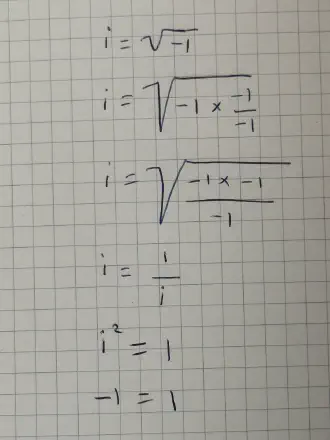 i = √-1
i = √(-1 × -1/-1)
i = √((-1 × -1)/-1)
i = 1/i
i² = 1
-1 = 1